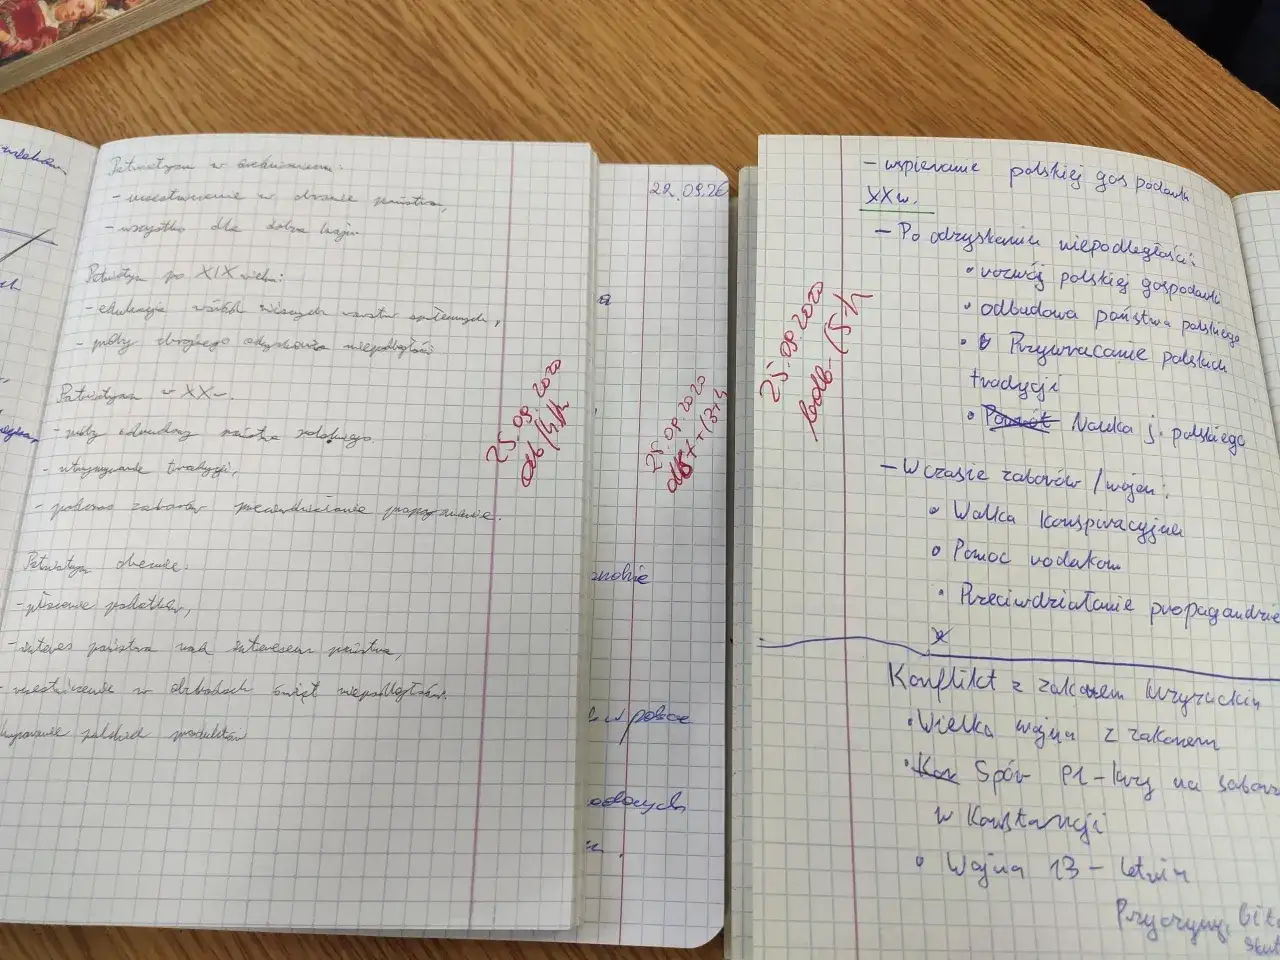 Patriotyzm w
- uczestniczenie w obronie państwa,
- wszystko dla dobra kraju.
Patriotyzm po XIX wieku:
- edukacja wśród niższych warstw społecznych,
- próby zbrojnego odzyskania niepodległości
Patriotyzm w XX w.
- próby odbudowy państwa polskiego.
- utrzymywanie tradycji,
- podczas zaborów przeciwdziałanie propagandzie.
Patriotyzm obecnie:
- płacenie podatków,
- interes państwa nad interesem państwa,
- uczestniczenie w obchodach świąt niepodległości.
kupowanie polskich produktów
25.09.2020
29.09.20
a
25.09.2020
w polsce
25.09.2020
- wspieranie polskiej gospodarki
XX w.
- Po odzyskaniu niepodległości:
• rozwój polskiej gospodarki
• odbudowa państwa polskiego
• Przywracanie polskich
tradycji
• Nauka j. polskiego
- W czasie zaborów / wojen:
• Walka konspiracyjna
• Pomoc rodakom
• Przeciwdziałanie propagandzie
Konflikt z zakonem krzyżackim
• Wielka wojna z zakonem
• Spór PL-krzy na
w Konstancji
• Wojna 13-letnia
Przyczyny,